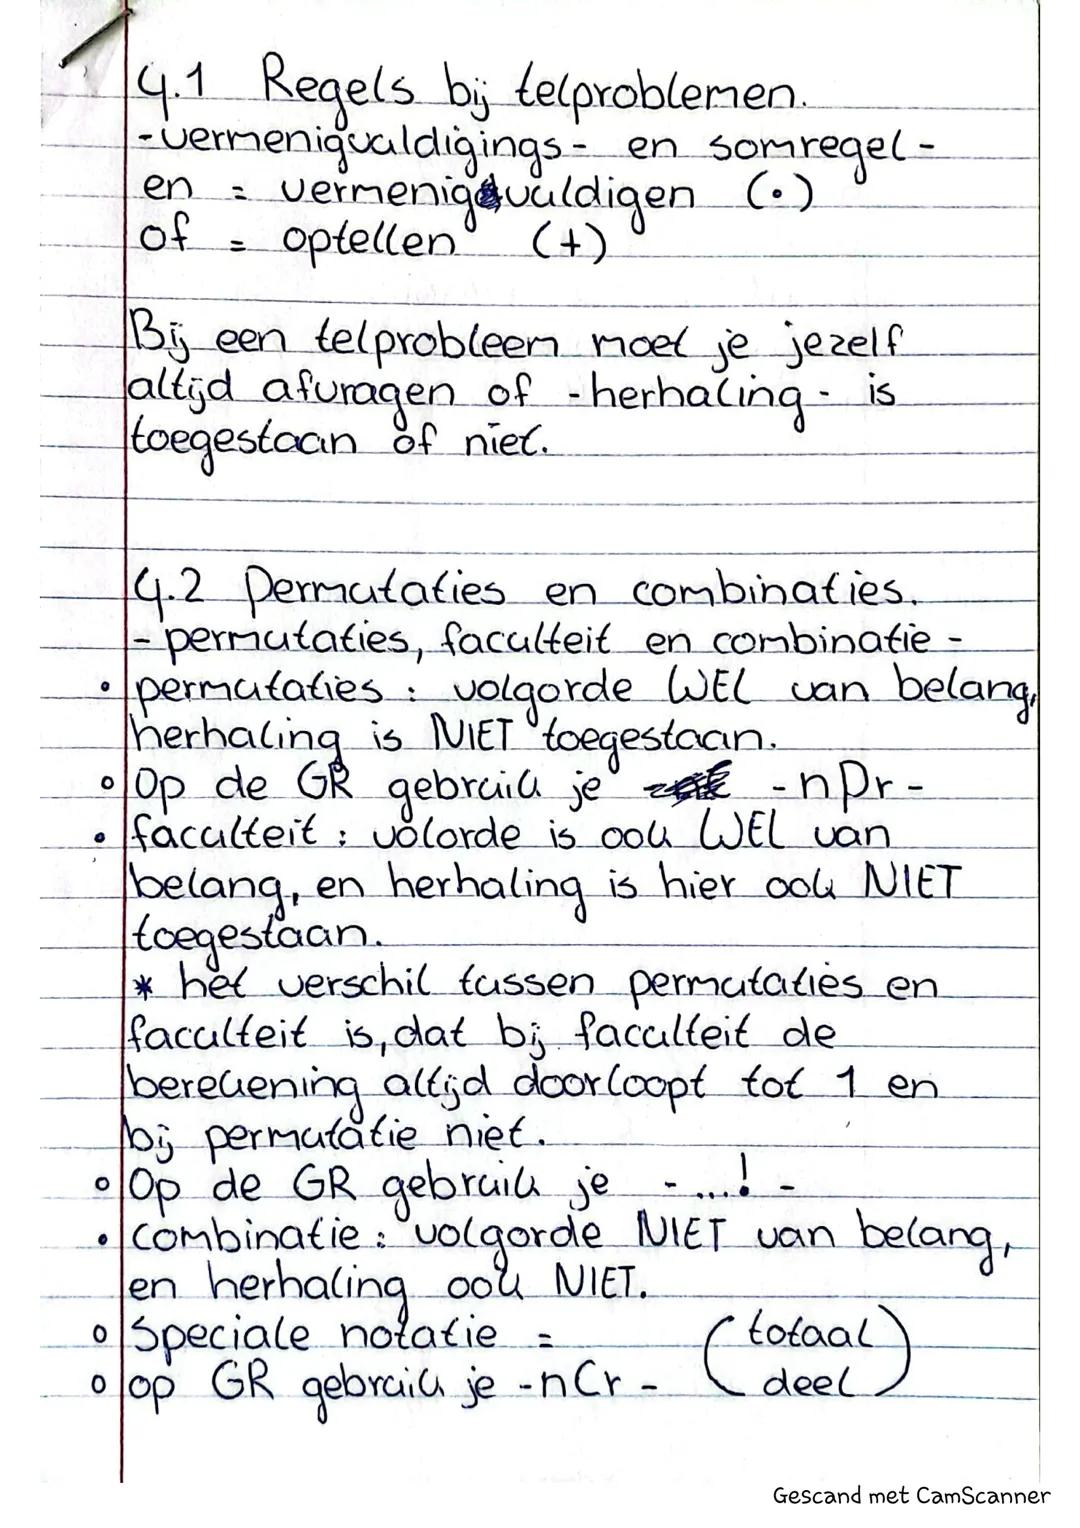 4.1 Regels bij telproblemen.
-vermenigvuldigings- en somregel-
en = vermenigvuldigen (•)
of = optellen (+)
Bij een telprobleem moet je jezelf
altijd afvragen of -herhaling- is
toegestaan of niet.
4.2 Permutaties en combinaties.
- permutaties, faculteit en combinatie -
• permutaties : volgorde WEL van belang,
herhaling is NIET toegestaan.
∘ Op de GR gebruik je -nPr-
• faculteit : volorde is ook WEL van
belang, en herhaling is hier ook NIET
toegestaan.
* het verschil tussen permutaties en
faculteit is, dat bij faculteit de
berekening altijd doorloopt tot 1 en
bij permutatie niet.
∘ Op de GR gebruik je -...!-
• combinatie : volgorde NIET van belang,
en herhaling ook NIET.
∘ Speciale notatie = (totaal
∘ op GR gebruik je -nCr- deel)
Gescand met CamScanner